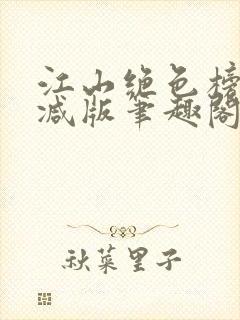 江山绝色榜
减版笔趣阁
秋菜里子